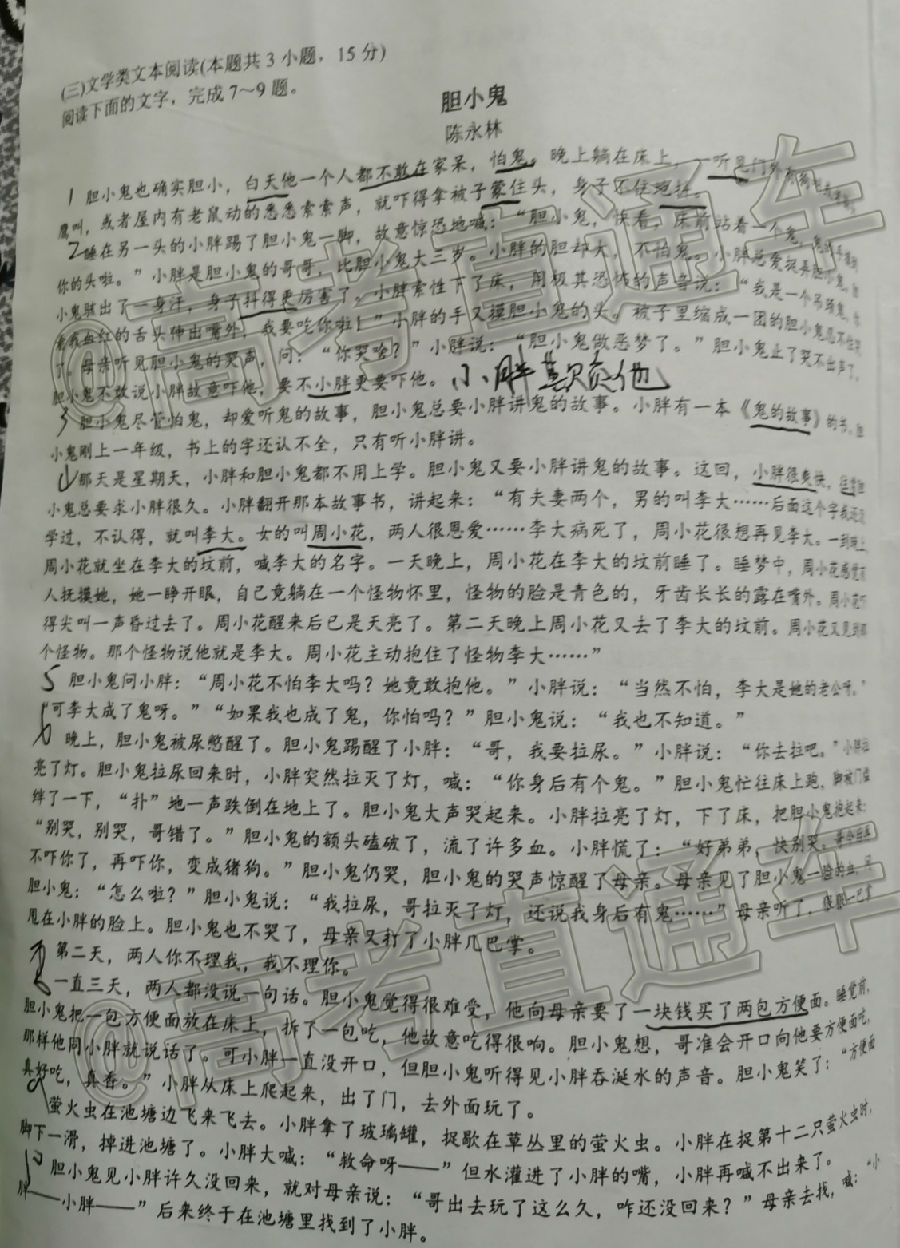 (三)文学类文本阅读(本题共3小题，15分)
阅读下面的文字，完成7～9题。
胆小鬼
陈永林
1 胆小鬼也确实胆小，白天他一个人都不敢在家呆，怕鬼。晚上躺在床上，一听见门外
鹰叫，或者屋内有老鼠动的悉悉索索声，就吓得拿被子蒙住头，身子不住地抖。
2 睡在另一头的小胖踢了胆小鬼一脚，故意惊恐地喊：“胆小鬼，快看，床前站着一个鬼，
你的头啦。”小胖是胆小鬼的哥哥，比胆小鬼大三岁。小胖的胆却大，不怕鬼。小胖总爱捉弄胆小鬼。
小鬼骇出了一身汗，身子抖得更厉害了。小胖索性下了床，用极其恐怖的声音说：“我是一个吊颈鬼，
看我血红的舌头伸出嘴外，我要吃你啦！”小胖的手又摸胆小鬼的头。被子里缩成一团的胆小鬼忍不住哭
了，母亲听见胆小鬼的哭声，问：“你哭啥？”小胖说：“胆小鬼做恶梦了。”胆小鬼止了哭不出声了，
胆小鬼不敢说小胖故意吓他，要不小胖更要吓他。 小胖欺负他
3 胆小鬼尽管怕鬼，却爱听鬼的故事，胆小鬼总要小胖讲鬼的故事。小胖有一本《鬼的故事》的书，胆
小鬼刚上一年级，书上的字还认不全，只有听小胖讲。
4 那天是星期天，小胖和胆小鬼都不用上学。胆小鬼又要小胖讲鬼的故事。这回，小胖很爽快，往常胆
小鬼总要求小胖很久。小胖翻开那本故事书，讲起来：“有夫妻两个，男的叫李大……后面这个字我还没
学过，不认得，就叫李大。女的叫周小花，两人很恩爱……李大病死了，周小花很想再见李大。一到晚上，
周小花就坐在李大的坟前，喊李大的名字。一天晚上，周小花在李大的坟前睡了。睡梦中，周小花感觉有
人抚摸她，她一睁开眼，自己竟躺在一个怪物怀里，怪物的脸是青色的，牙齿长长的露在嘴外。周小花吓
得尖叫一声昏过去了。周小花醒来后已是天亮了。第二天晚上周小花又去了李大的坟前。周小花又见到那
个怪物。那个怪物说他就是李大。周小花主动抱住了怪物李大……”
5 胆小鬼问小胖：“周小花不怕李大吗？她竟敢抱他。”小胖说：“当然不怕，李大是她的老公呀。”
“可李大成了鬼呀。”“如果我也成了鬼，你怕吗？”胆小鬼说：“我也不知道。”
6 晚上，胆小鬼被尿憋醒了。胆小鬼踢醒了小胖：“哥，我要拉尿。”小胖说：“你去拉吧。”小胖拉
亮了灯。胆小鬼拉尿回来时，小胖突然拉灭了灯，喊：“你身后有个鬼。”胆小鬼忙往床上跑，脚被门槛
绊了一下，“扑”地一声跌倒在地上了。胆小鬼大声哭起来。小胖拉亮了灯，下了床，把胆小鬼抱起来：
“别哭，别哭，哥错了。”胆小鬼的额头磕破了，流了许多血。小胖慌了：“好弟弟，快别哭，哥今后再
不吓你了，再吓你，变成猪狗。”胆小鬼仍哭，胆小鬼的哭声惊醒了母亲。母亲见了胆小鬼一脸的血，问
胆小鬼：“怎么啦？”胆小鬼说：“我拉尿，哥拉灭了灯，还说我身后有鬼……”母亲听了，狠狠一巴掌
甩在小胖的脸上。胆小鬼也不哭了，母亲又打了小胖几巴掌。
7 第二天，两人你不理我，我不理你。
8 一直三天，两人都没说一句话。胆小鬼觉得很难受，他向母亲要了一块钱买了两包方便面。睡觉前，
胆小鬼把一包方便面放在床上，拆了一包吃，他故意吃得很响。胆小鬼想，哥准会开口向他要方便面吃，
那样他同小胖就说话了。可小胖一直没开口，但胆小鬼听得见小胖吞涎水的声音。胆小鬼笑了：“方便面
真好吃，真香。”小胖从床上爬起来，出了门，去外面玩了。
9 萤火虫在池塘边飞来飞去。小胖拿了玻璃罐，捉歇在草丛里的萤火虫。小胖在捉第十二只萤火虫时，
脚下一滑，掉进池塘了。小胖大喊：“救命呀——”但水灌进了小胖的嘴，小胖再喊不出来了。
10 胆小鬼见小胖许久没回来，就对母亲说：“哥出去玩了这么久，咋还没回来？”母亲去找，喊：“小
胖——小胖——”后来终于在池塘里找到了小胖。
@高考直通车
@高考直通车